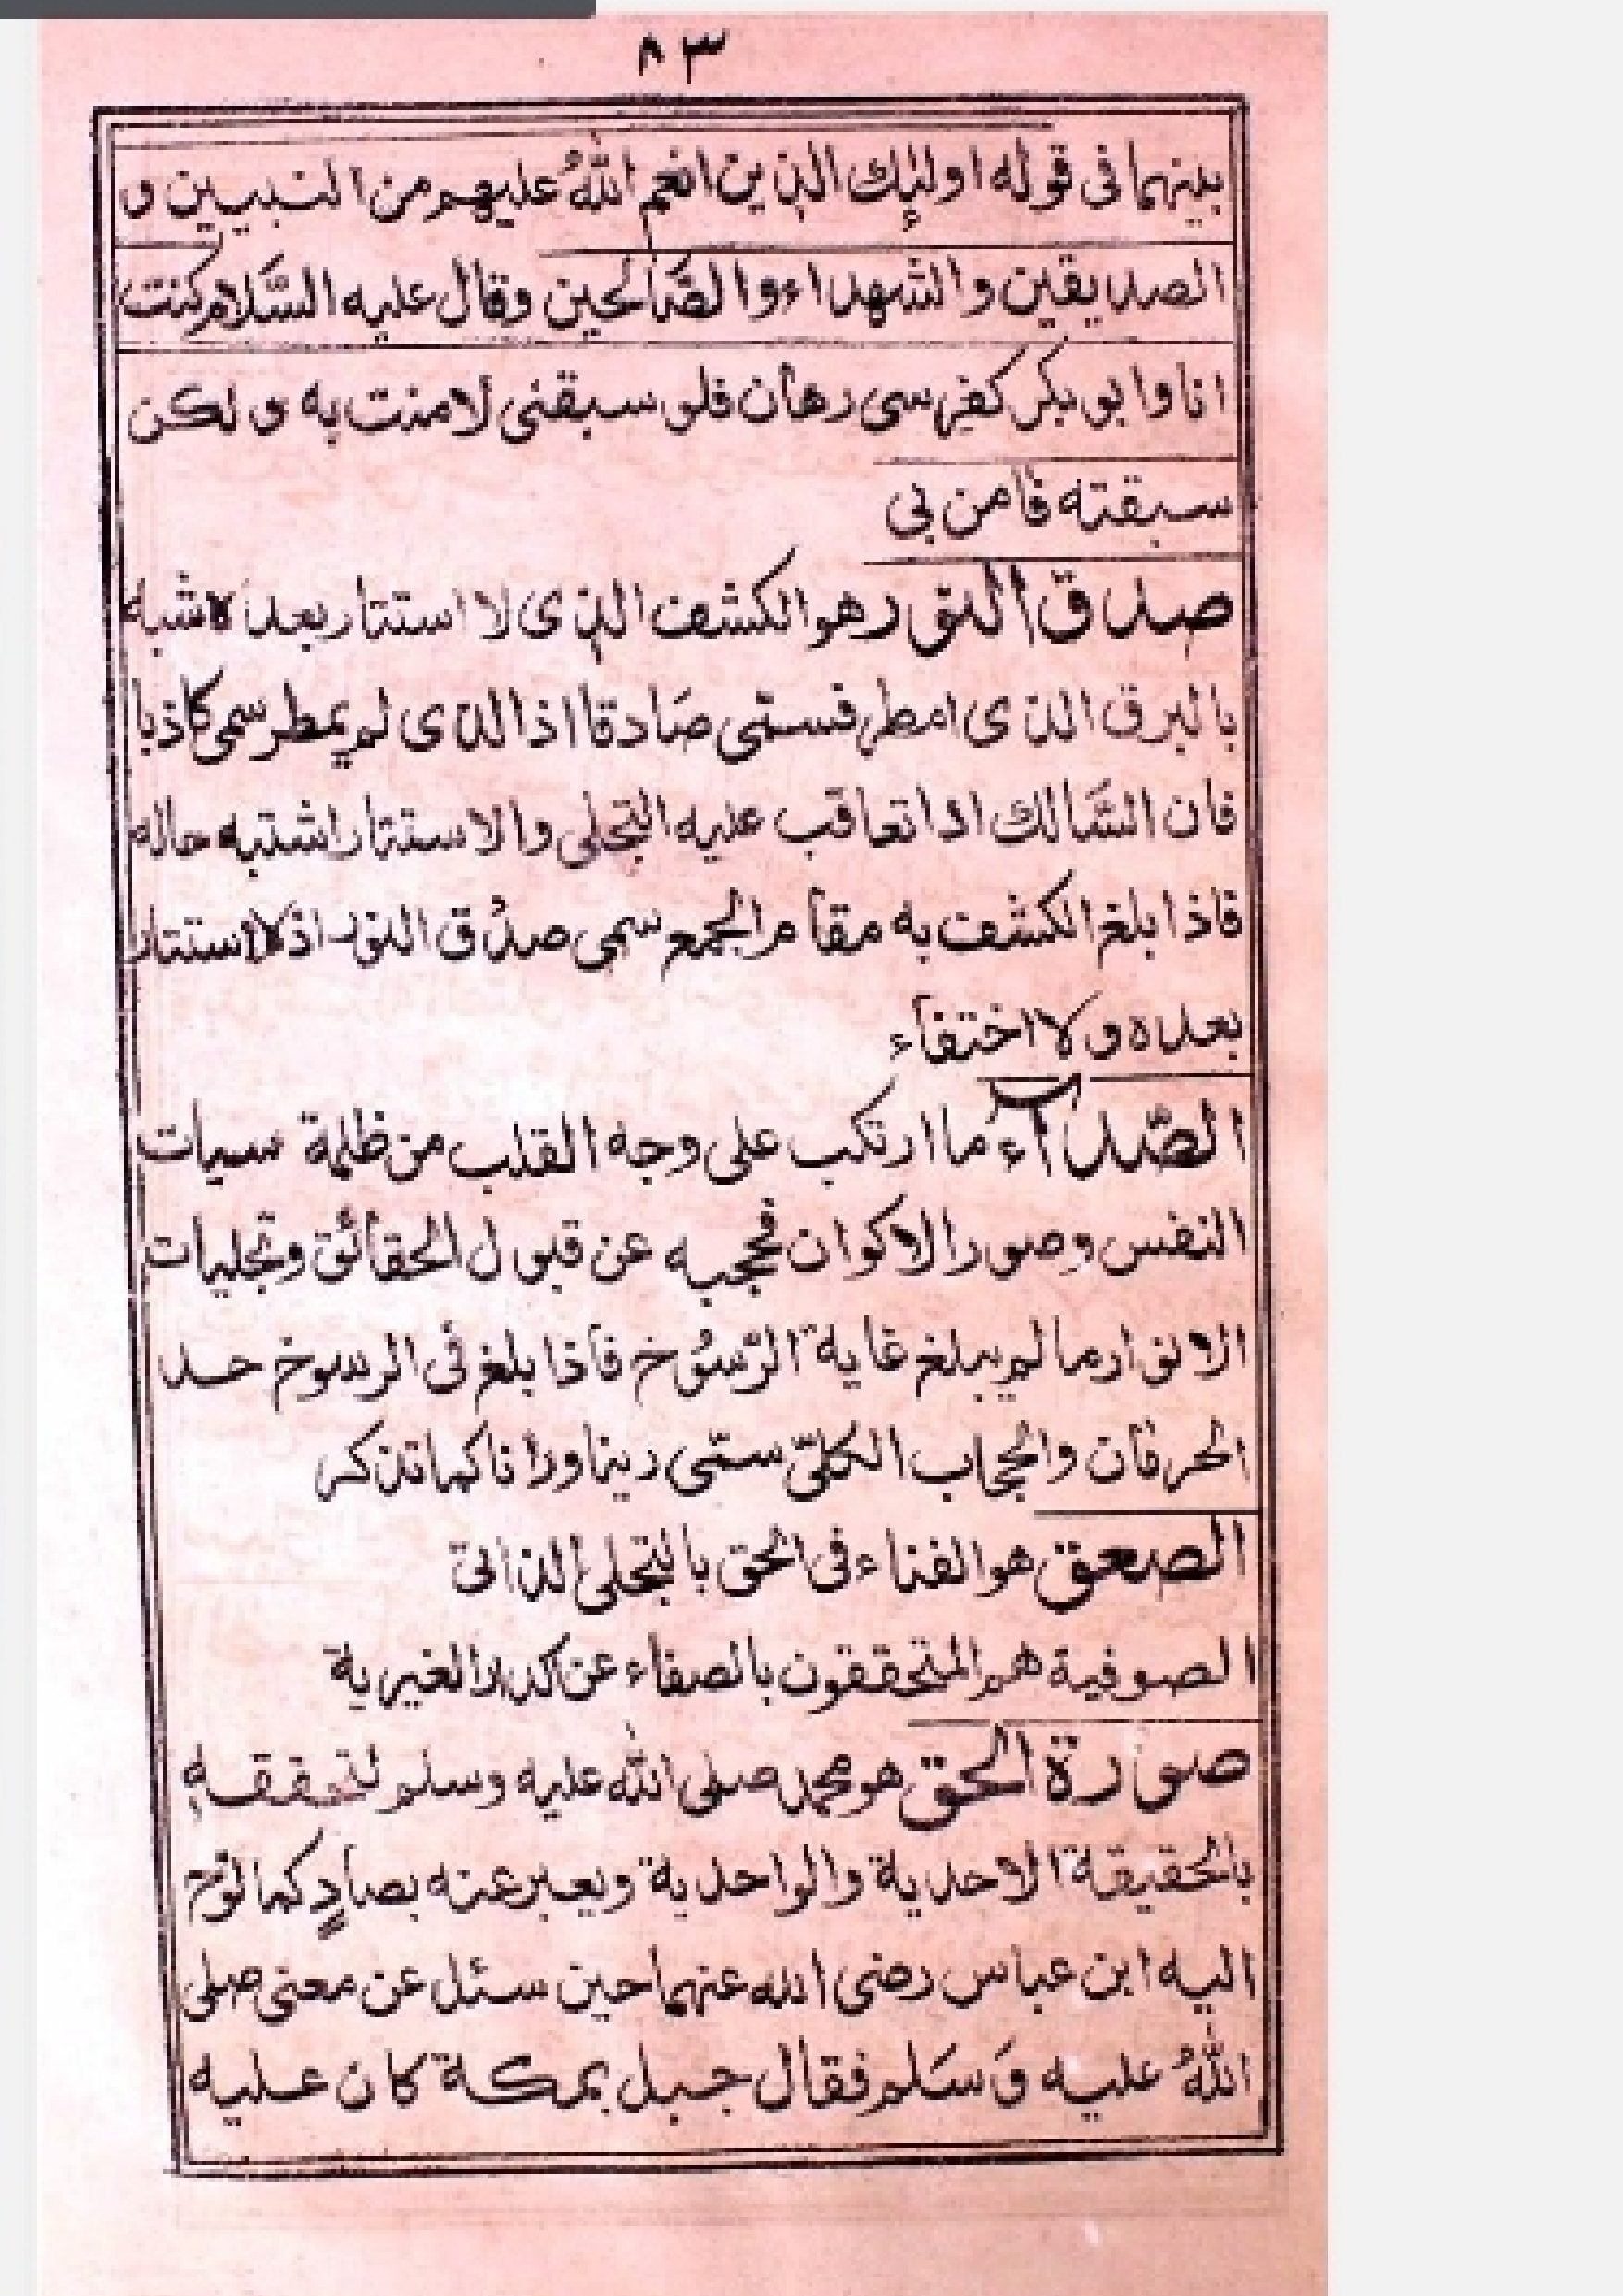 ٨٣
بينهما فى قوله اولئك الذين انعم اللهُ عليهم من النبيين و
الصديقين والشهداء والصَّالحين وقال عليه السَّلام كنت
انا وابو بكر كفرسى رهان فلو سبقنى لامنت به ولكن
سبقته فامن بى
صدق النور هو الكشف الذى لا استتار بعده شبه
بالبرق الذى امطر فسمّى صَادقا اذا الذى لم يمطر سمى كاذبا
فان السَّالك اذا تعاقب عليه التجلى والاستتار اشتبه حاله
فاذا بلغ الكشف به مقام الجمع سمى صدُق النور اذ لا استتار
بعده ولا اختفآء
الصّدآء ما ارتكب على وجه القلب من ظلمة سيات
النفس وصور الاكوان فحجبه عن قبول الحقائق وتجليات
الانوار ما لم يبلغ غاية الرّسُوخ فاذا بلغ فى الرسوخ حد
الحرمان والحجاب الكلىّ سمّى رينا ورانا كما تذكر
الصعق هو الفناء فى الحق بالتجلى الذاتى
الصوفية هم المتحققون بالصفاء عن اكدار الغيرية
صورة الحق هو محمد صلى الله عليه وسلم لتحققهِ
بالحقيقة الاحدية والواحدية ويعبر عنه بصادٍ كما لوّح
اليه ابن عباس رضى الله عنهما حين سئل عن معنى صلى
اللهُ عليه وَسَلم فقال جبل بمكة كان عليه